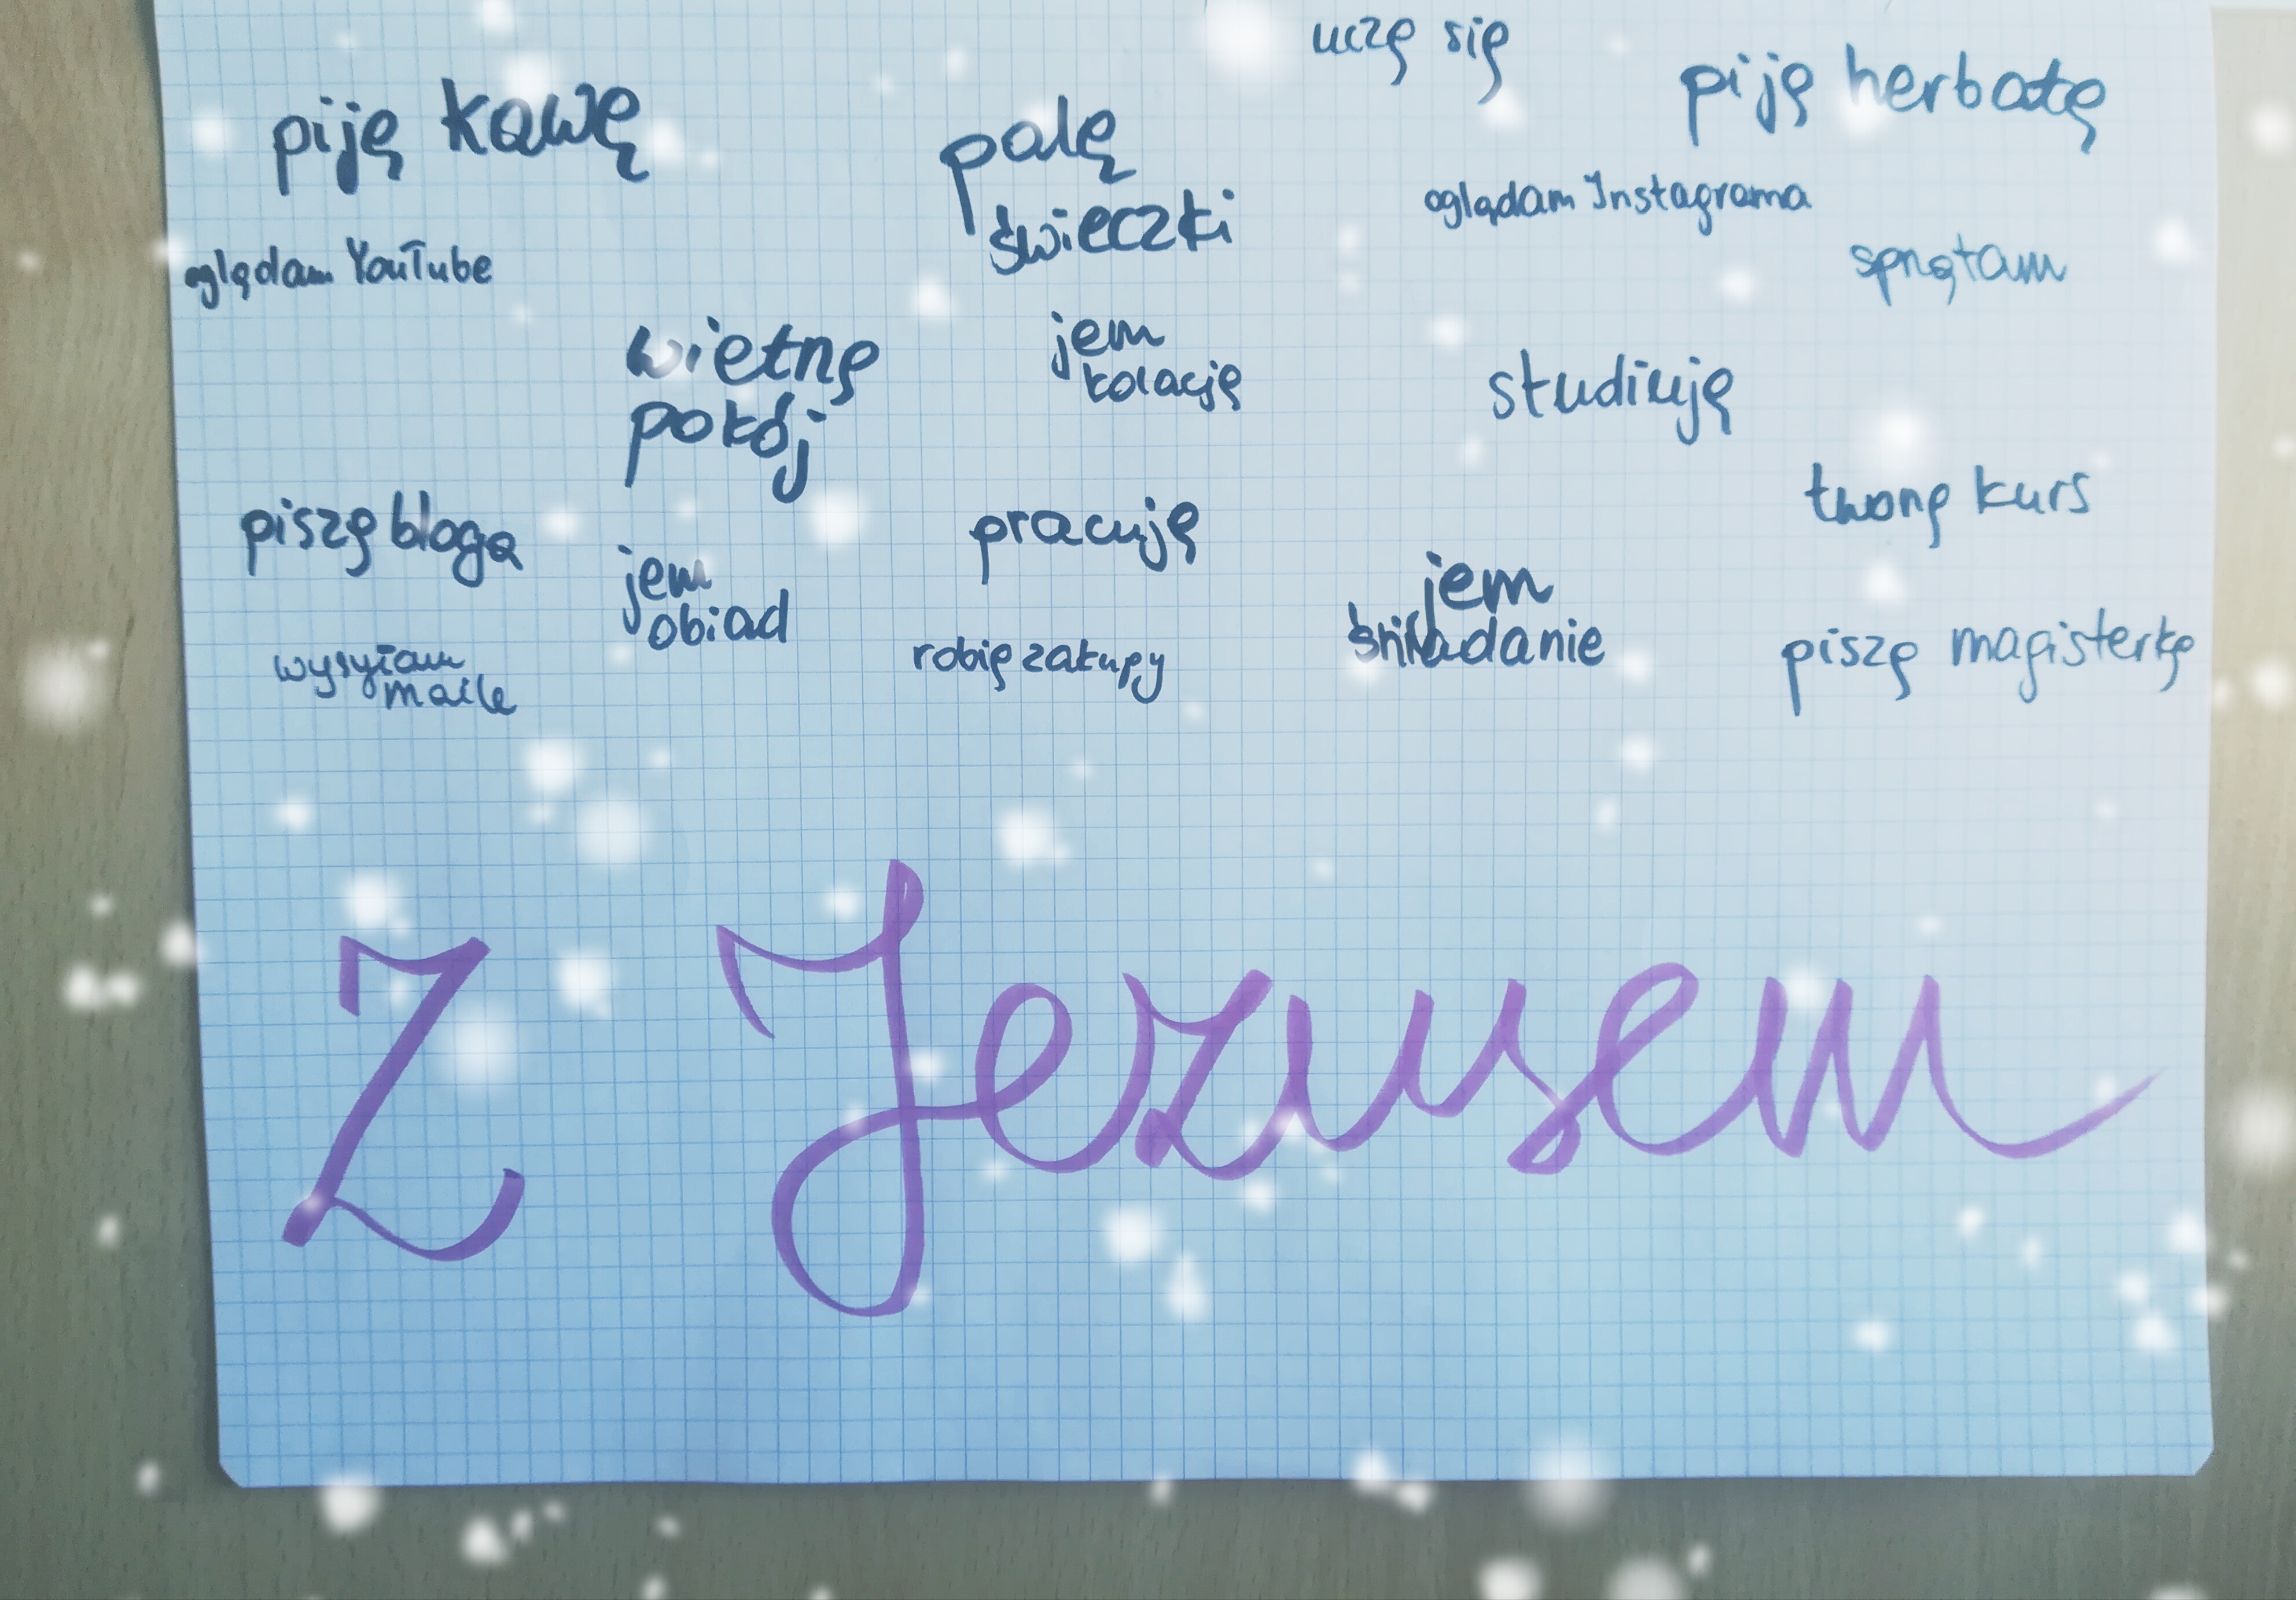 uczę się
piję kawę
palę
świeczki
piję herbatę
oglądam Instagrama
oglądam YouTube
sprzątam
wietrzę
pokój
jem
kolację
studiuję
piszę bloga
pracuję
tworzę kurs
jem
obiad
jem
śniadanie
wysyłam
maile
robię zakupy
piszę magisterkę
Z Jezusem